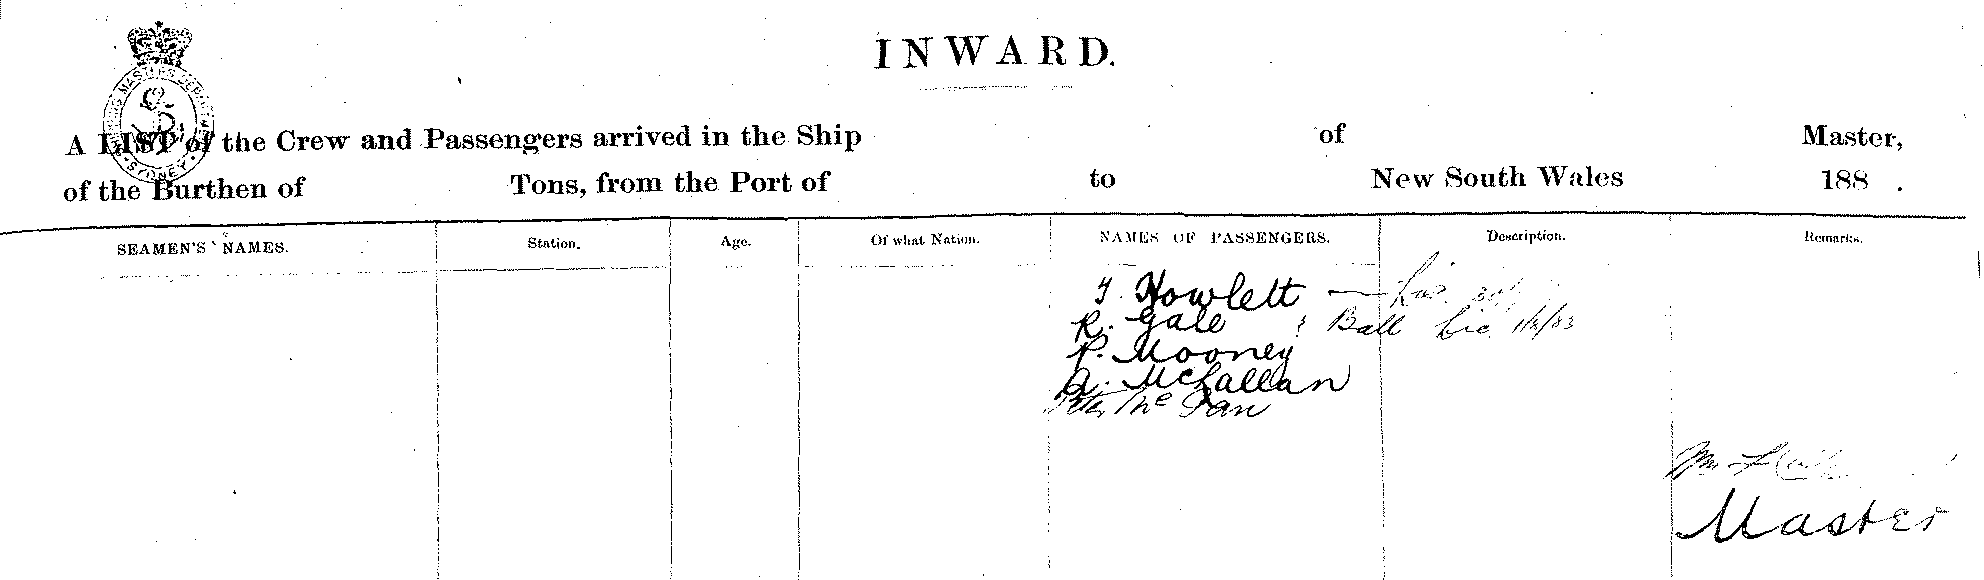 INWARD.
SHIPPING MASTER'S DEPARTMENT
SYDNEY
A LIST of the Crew and Passengers arrived in the Ship of Master,
of the Burthen of Tons, from the Port of to New South Wales 188 .
SEAMEN'S NAMES. Station. Age. Of what Nation. NAMES OF PASSENGERS. Description. Remarks.
Howlett
R. Gale Ball
P. Mooney
A.
Mc
Master